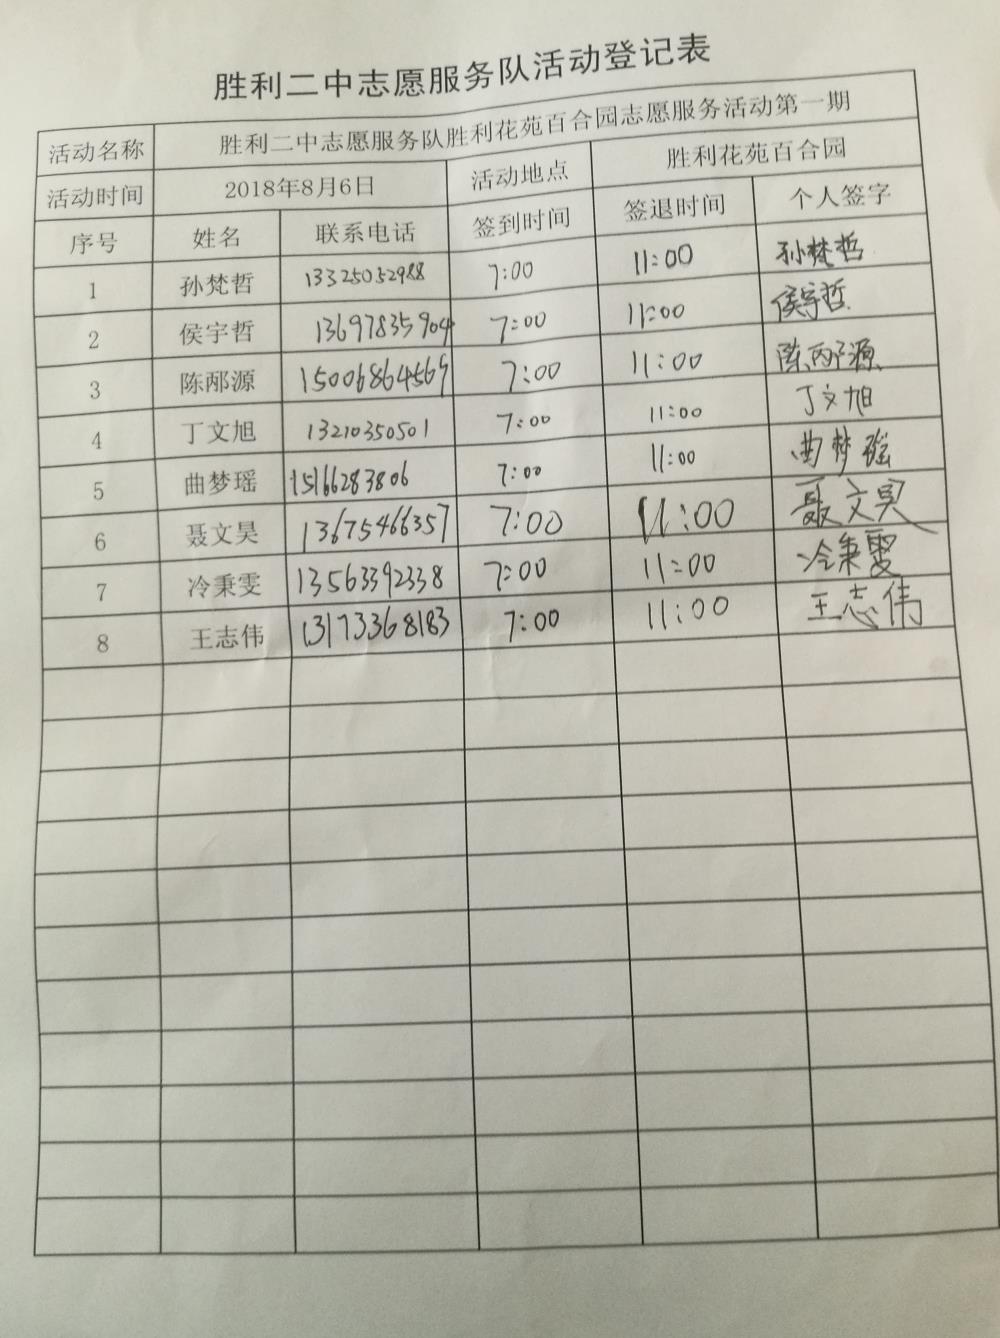 胜利二中志愿服务队活动登记表
活动名称 胜利二中志愿服务队胜利花苑百合园志愿服务活动第一期
活动时间 2018年8月6日 活动地点 胜利花苑百合园
序号 姓名 联系电话 签到时间 签退时间 个人签字
1 孙梵哲 13325052988 7:00 11:00 孙梵哲
2 侯宇哲 13697835904 7:00 11:00 侯宇哲
3 陈邴源 15006864569 7:00 11:00 陈邴源
4 丁文旭 13210350501 7:00 11:00 丁文旭
5 曲梦瑶 15166283806 7:00 11:00 曲梦瑶
6 聂文昊 13675466357 7:00 11:00 聂文昊
7 冷秉雯 13563392338 7:00 11:00 冷秉雯
8 王志伟 13173368183 7:00 11:00 王志伟